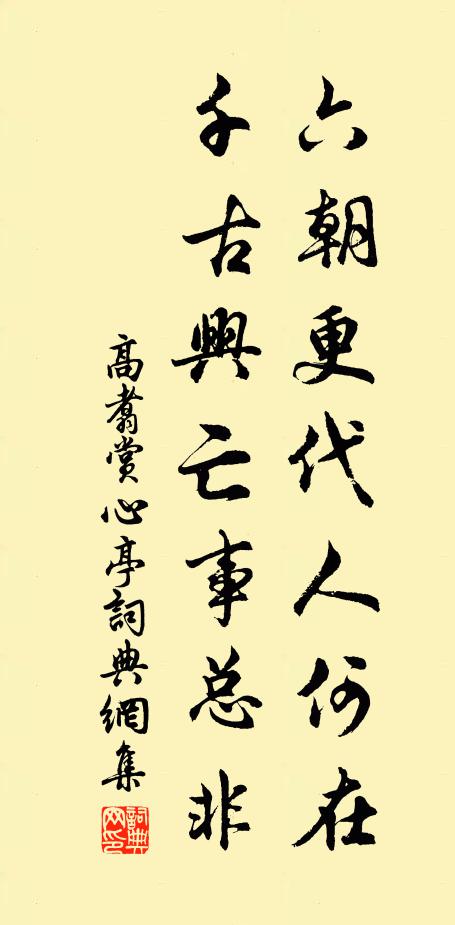 六朝更代人何在
千古興亡事总非
高翥賞心亭詞典網集
詞典
网印